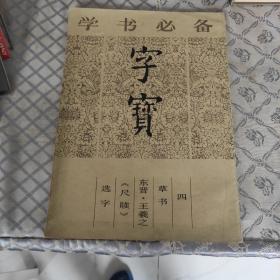 学书必备
字寶
四
草书
东晋·王羲之
《尺牍》
选字